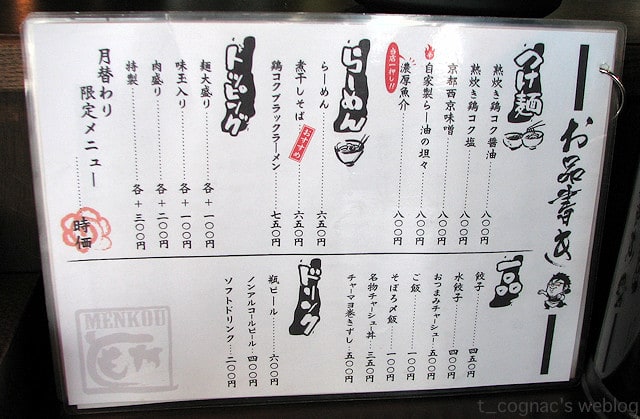 お品書き
つけ麺
熟炊き鶏コク醤油 八〇〇円
熟炊き鶏コク塩 八〇〇円
京都西京味噌 八〇〇円
自家製らー油の坦々 八〇〇円
当店一押し!!
濃厚魚介 八〇〇円
らーめん
らーめん 六五〇円
煮干しそば おすすめ 六五〇円
鶏コクブラックラーメン 七五〇円
トッピング
麺大盛り 各+一〇〇円
味玉入り 各+一〇〇円
肉盛り 各+二〇〇円
特製 各+三〇〇円
月替わり
限定メニュー 時価
一品
餃子 四五〇円
水餃子 四〇〇円
おつまみチャーシュー 五〇〇円
ご飯 一〇〇円
そぼろ〆飯 一〇〇円
名物チャーシュー丼 三五〇円
チャーマヨ巻きずし 五〇〇円
ドリンク
瓶ビール 六〇〇円
ノンアルコールビール 四〇〇円
ソフトドリンク 二〇〇円
MENKOU
t_cognac's weblog